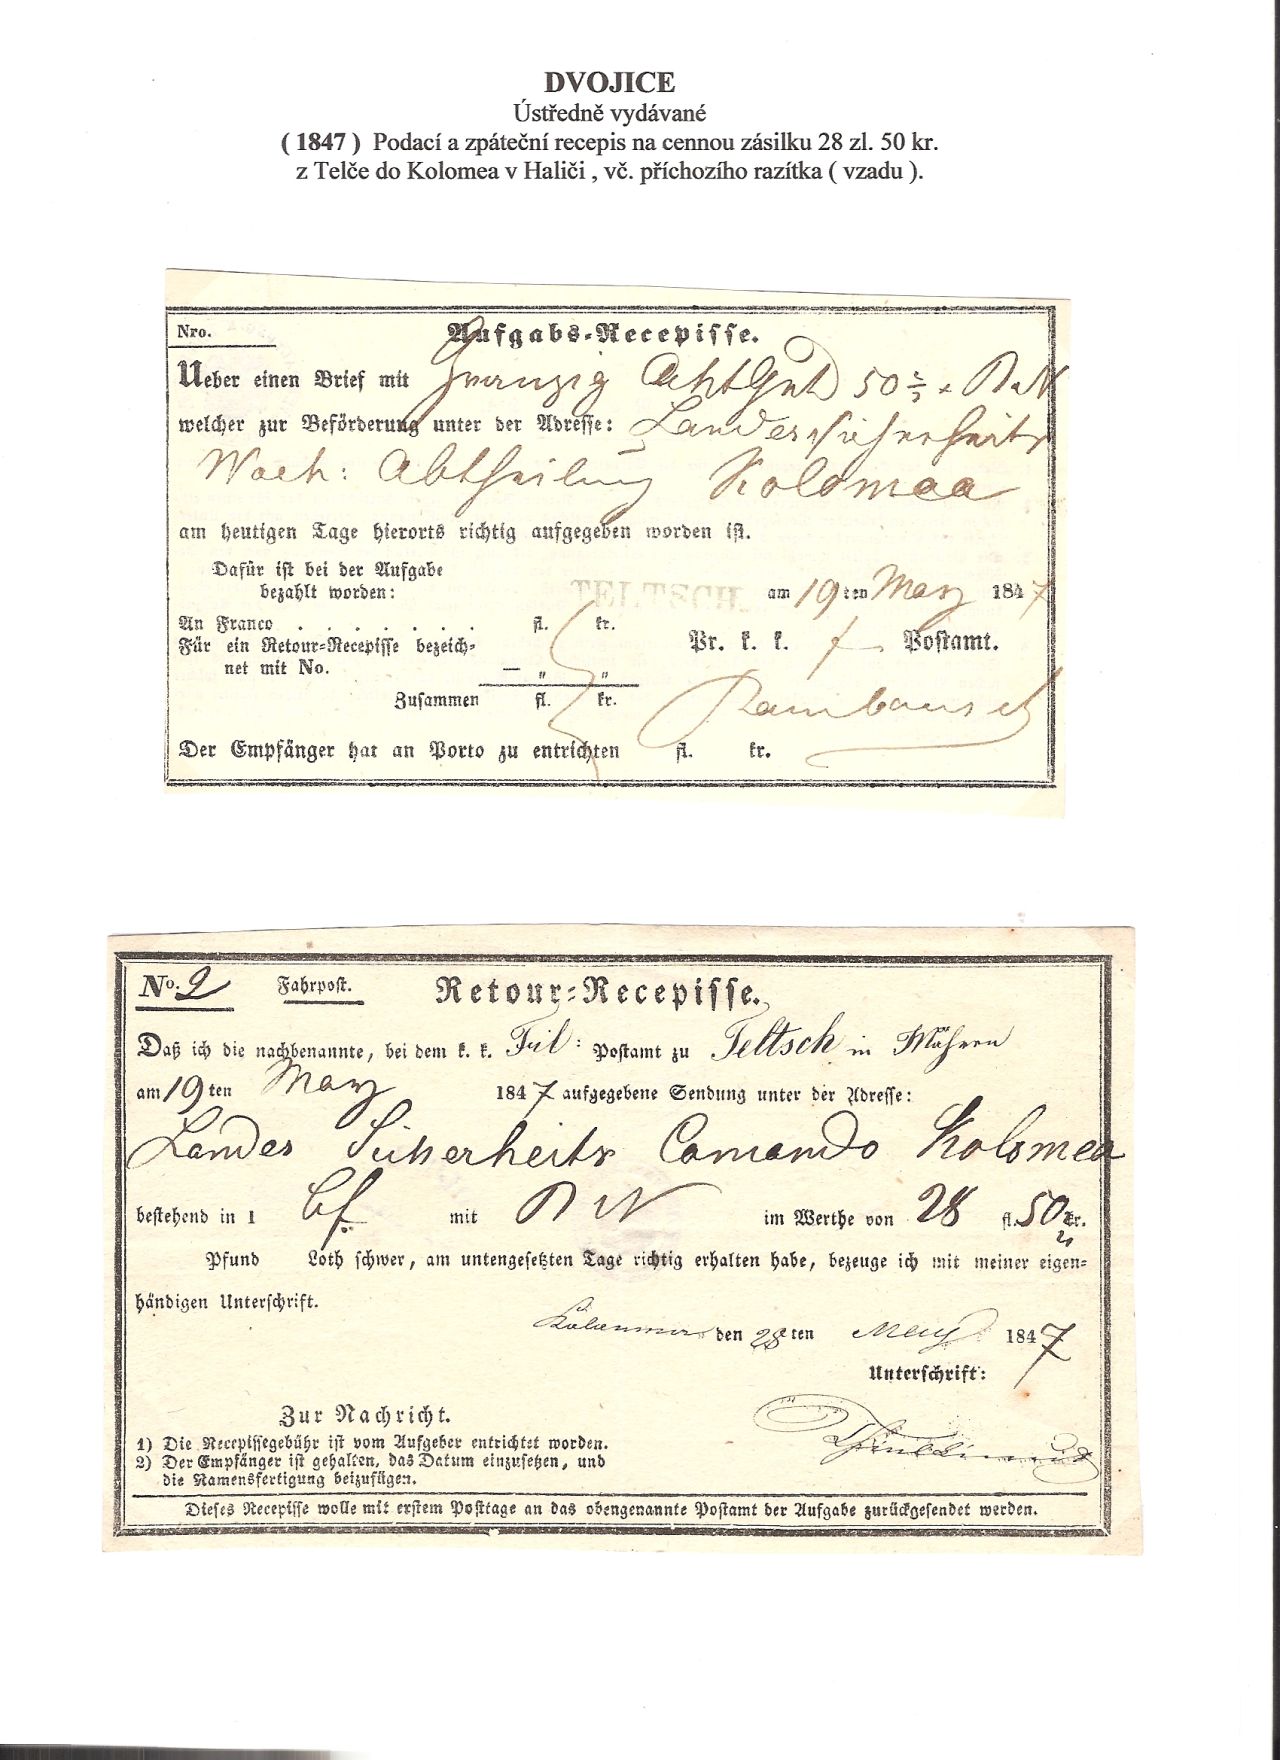 DVOJICE
Ústředně vydávané
( 1847 ) Podací a zpáteční recepis na cennou zásilku 28 zl. 50 kr.
z Telče do Kolomea v Haliči , vč. příchozího razítka ( vzadu ).
Nro.
Aufgabs-Recepisse.
Ueber einen Brief mit Zwanzig Acht 50 x B N
welcher zur Beförderung unter der Adresse: Landessicherheits
Wach: Abtheilung Kolomea
am heutigen Tage hierorts richtig aufgegeben worden ist.
Dafür ist bei der Aufgabe
bezahlt worden:
TELTSCH.
am 19ten Marz 1847
An Franco . . . . . . . fl. kr.
Für ein Retour-Recepisse bezeich-
net mit No. — " "
Pr. k. k. Postamt.
Zusammen fl. kr.
Der Empfänger hat an Porto zu entrichten fl. kr.
No. 2 Fahrpost. Retour-Recepisse.
Daß ich die nachbenannte, bei dem k. k. Fil: Postamt zu Teltsch in Mähren
am 19ten Marz 1847 aufgegebene Sendung unter der Adresse:
Landes Sicherheits Comando Kolomea
bestehend in 1 Bf mit B N im Werthe von 28 fl. 50 kr.
Pfund Loth schwer, am untengesetzten Tage richtig erhalten habe, bezeuge ich mit meiner eigen-
händigen Unterschrift.
den 28ten 1847
Unterschrift:
Zur Nachricht.
1) Die Recepissegebühr ist vom Aufgeber entrichtet worden.
2) Der Empfänger ist gehalten, das Datum einzusetzen, und
die Namensfertigung beizufügen.
Dieses Recepisse wolle mit erstem Posttage an das obengenannte Postamt der Aufgabe zurückgesendet werden.